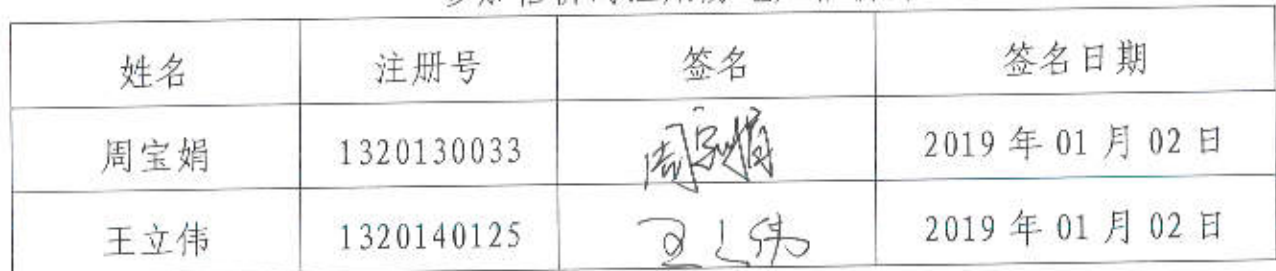 姓名 注册号 签名 签名日期
周宝娟 1320130033 周宝娟 2019年01月02日
王立伟 1320140125 王立伟 2019年01月02日